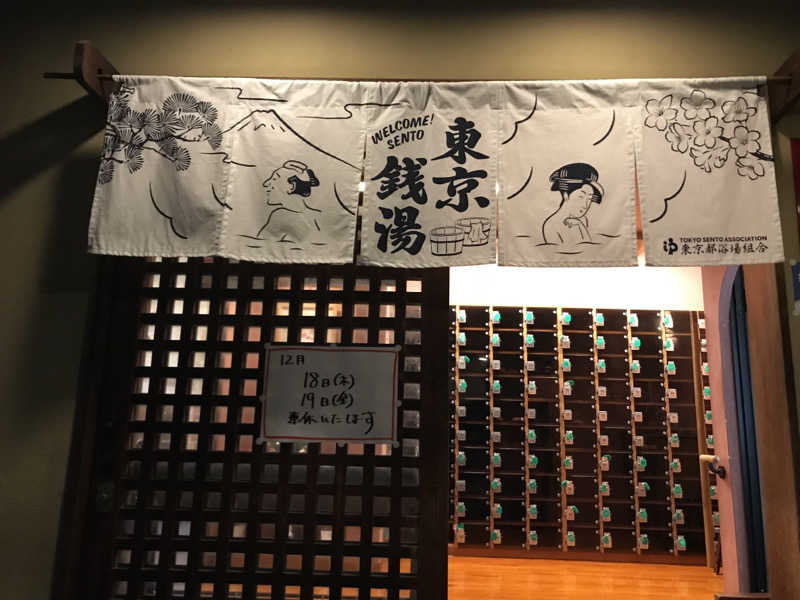 WELCOME!
SENTO
東京
銭湯
TOKYO SENTO ASSOCIATION
東京都浴場組合
12月
18日(木)
19日(金)
連休いたします